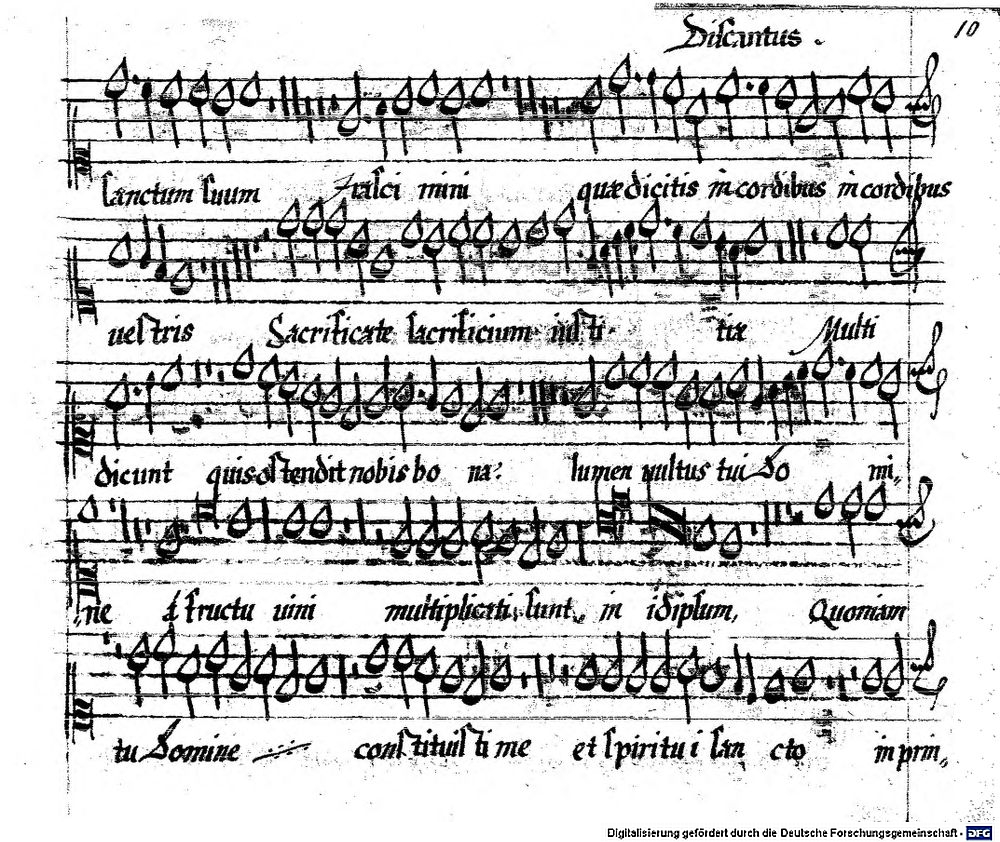 Discantus. 10
sanctum suum Irasci mini quæ dicitis in cordibus in cordibus
uestris Sacrificate sacrificium iusti tiæ Multi
dicunt quis ostendit nobis bo na? lumen uultus tui Do mi,
ne á fructu uini multiplicati sunt in idipsum, Quoniam
tu Domine constituisti me et spiritu i san cto in prin,
Digitalisierung gefördert durch die Deutsche Forschungsgemeinschaft - DFG